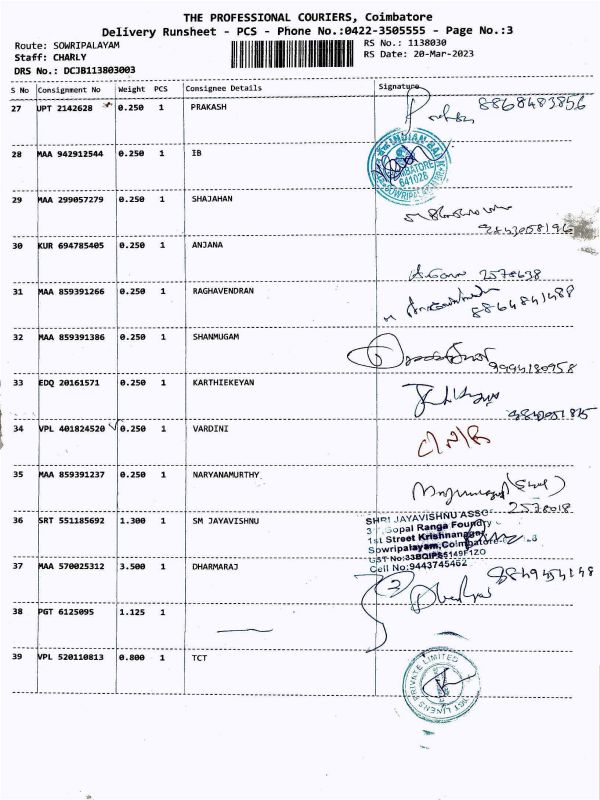 THE PROFESSIONAL COURIERS, Coimbatore
Delivery Runsheet - PCS - Phone No.:0422-3505555 - Page No.:3
Route: SOWRIPALAYAM
RS No.: 1138030
Staff: CHARLY
RS Date: 20-Mar-2023
DRS No.: DCJB113803003
S No Consignment No Weight PCS Consignee Details Signature
27 UPT 2142628 0.250 1 PRAKASH 8868483856
28 MAA 942912544 0.250 1 IB
INDIAN BANK
COIMBATORE
641028
SOWRIPALAYAM
29 MAA 299057279 0.250 1 SHAJAHAN
9843058196
30 KUR 694785405 0.250 1 ANJANA
2578638
31 MAA 859391266 0.250 1 RAGHAVENDRAN
8864841488
32 MAA 859391386 0.250 1 SHANMUGAM
9994180958
33 EDQ 20161571 0.250 1 KARTHIEKEYAN
34 VPL 401824520 0.250 1 VARDINI
35 MAA 859391237 0.250 1 NARYANAMURTHY
2578018
36 SRT 551185692 1.300 1 SM JAYAVISHNU
SHRI JAYAVISHNU ASSO
Gopal Ranga Foundry
1st Street Krishnanagar
Sowripalayam,Coimbatore
Cell No:9443745462
37 MAA 570025312 3.500 1 DHARMARAJ
2
38 PGT 6125095 1.125 1
39 VPL 520110813 0.800 1 TCT
TCT LINENS PRIVATE LIMITED